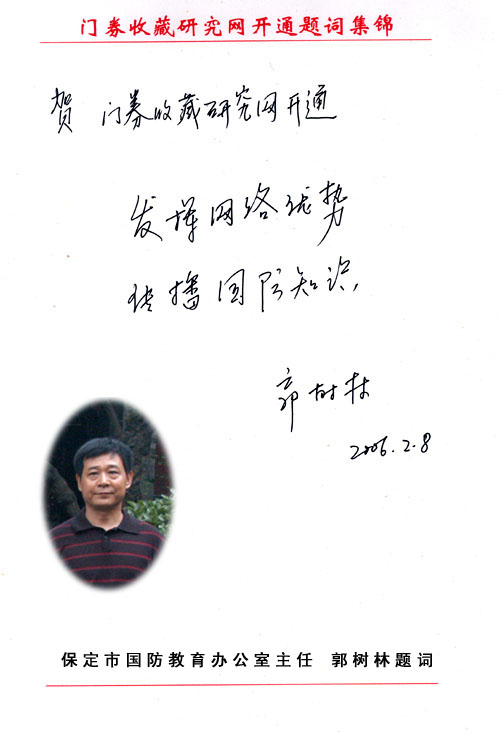 门券收藏研究网开通题词集锦
贺 门券收藏研究网开通
发挥网络优势
传播国防知识
郭树林
2006.2.8
保定市国防教育办公室主任 郭树林题词